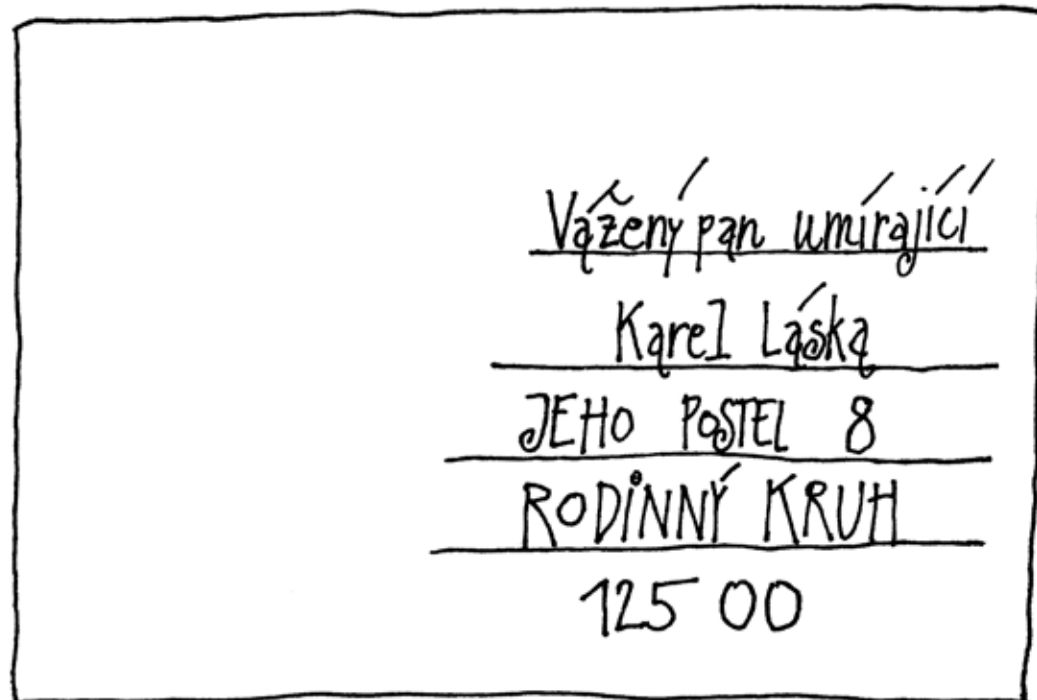 Vážený pan umírající
Karel Láska
JEHO POSTEL 8
RODINNÝ KRUH
125 00